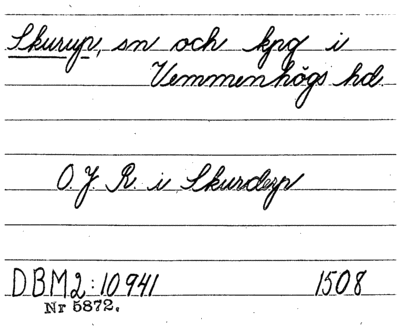 Skurup, sn och kpg i
Vemmenhögs hd.
O. J. R. i Skurderp
DBM2:10941 1508
Nr 5872.